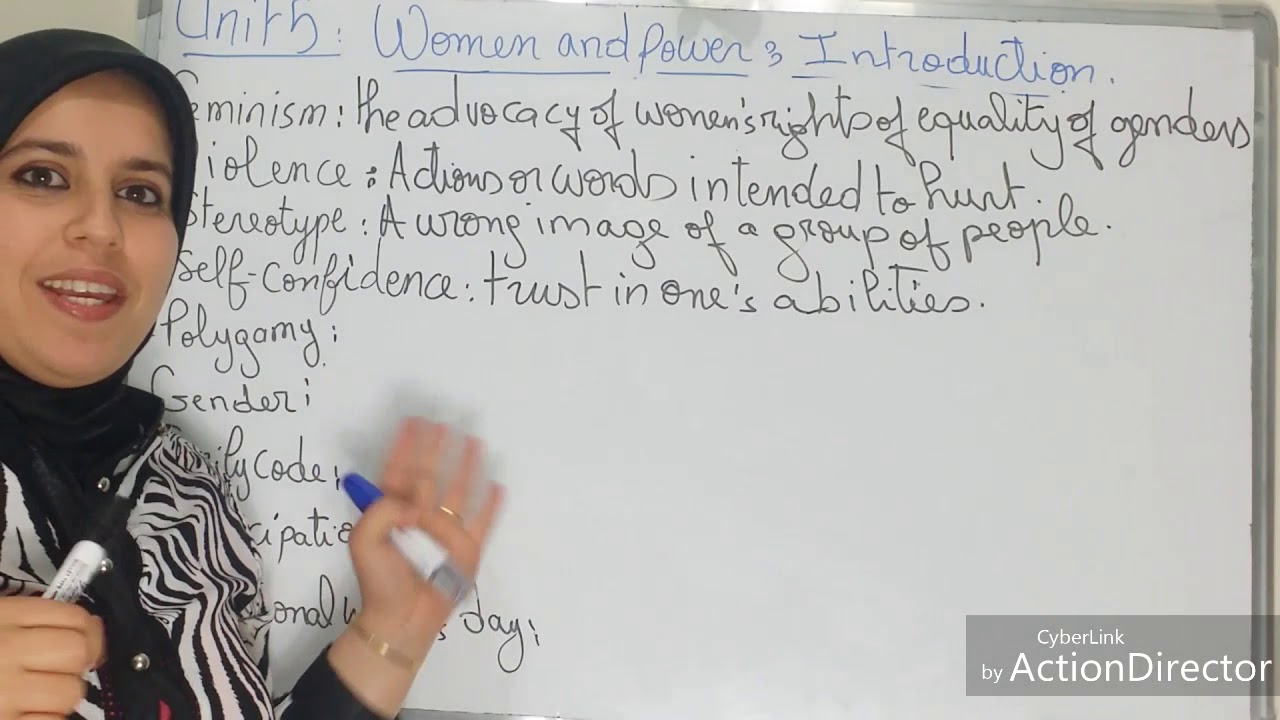 Unit 5: Women and Power: Introduction.
eminism: the advocacy of women's rights of equality of genders
iolence: Actions or words intended to hurt.
Stereotype: A wrong image of a group of people.
Self-confidence: trust in one's abilities.
Polygamy:
Gender:
ily code:
cipatio
ional w s day:
CyberLink
by ActionDirector